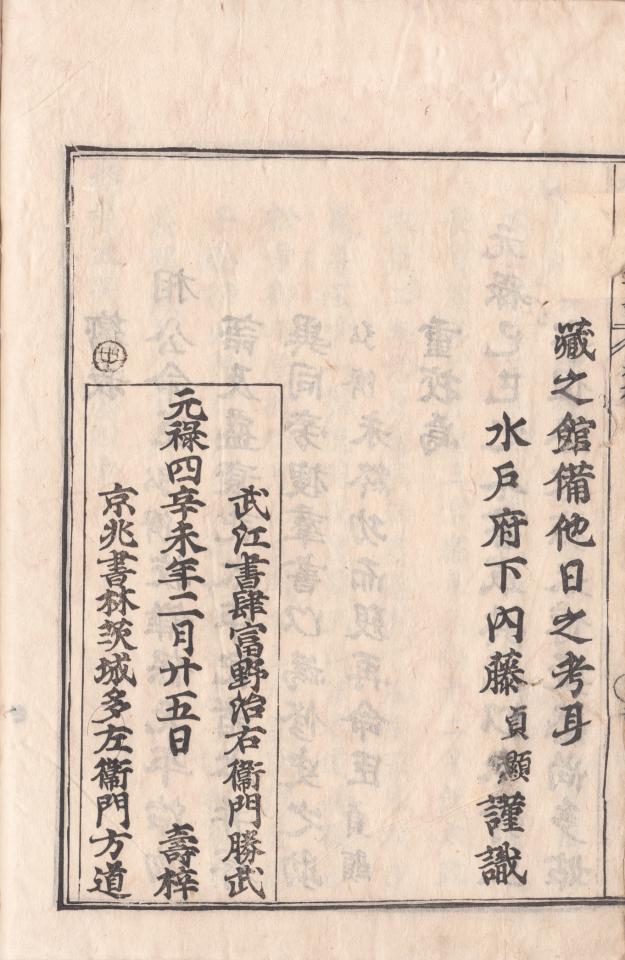 藏之館備他日之考耳
水戶府下內藤貞顯謹識
武江書肆富野治右衞門勝武
元祿四辛未年二月廿五日 壽梓
京兆書林茨城多左衞門方道